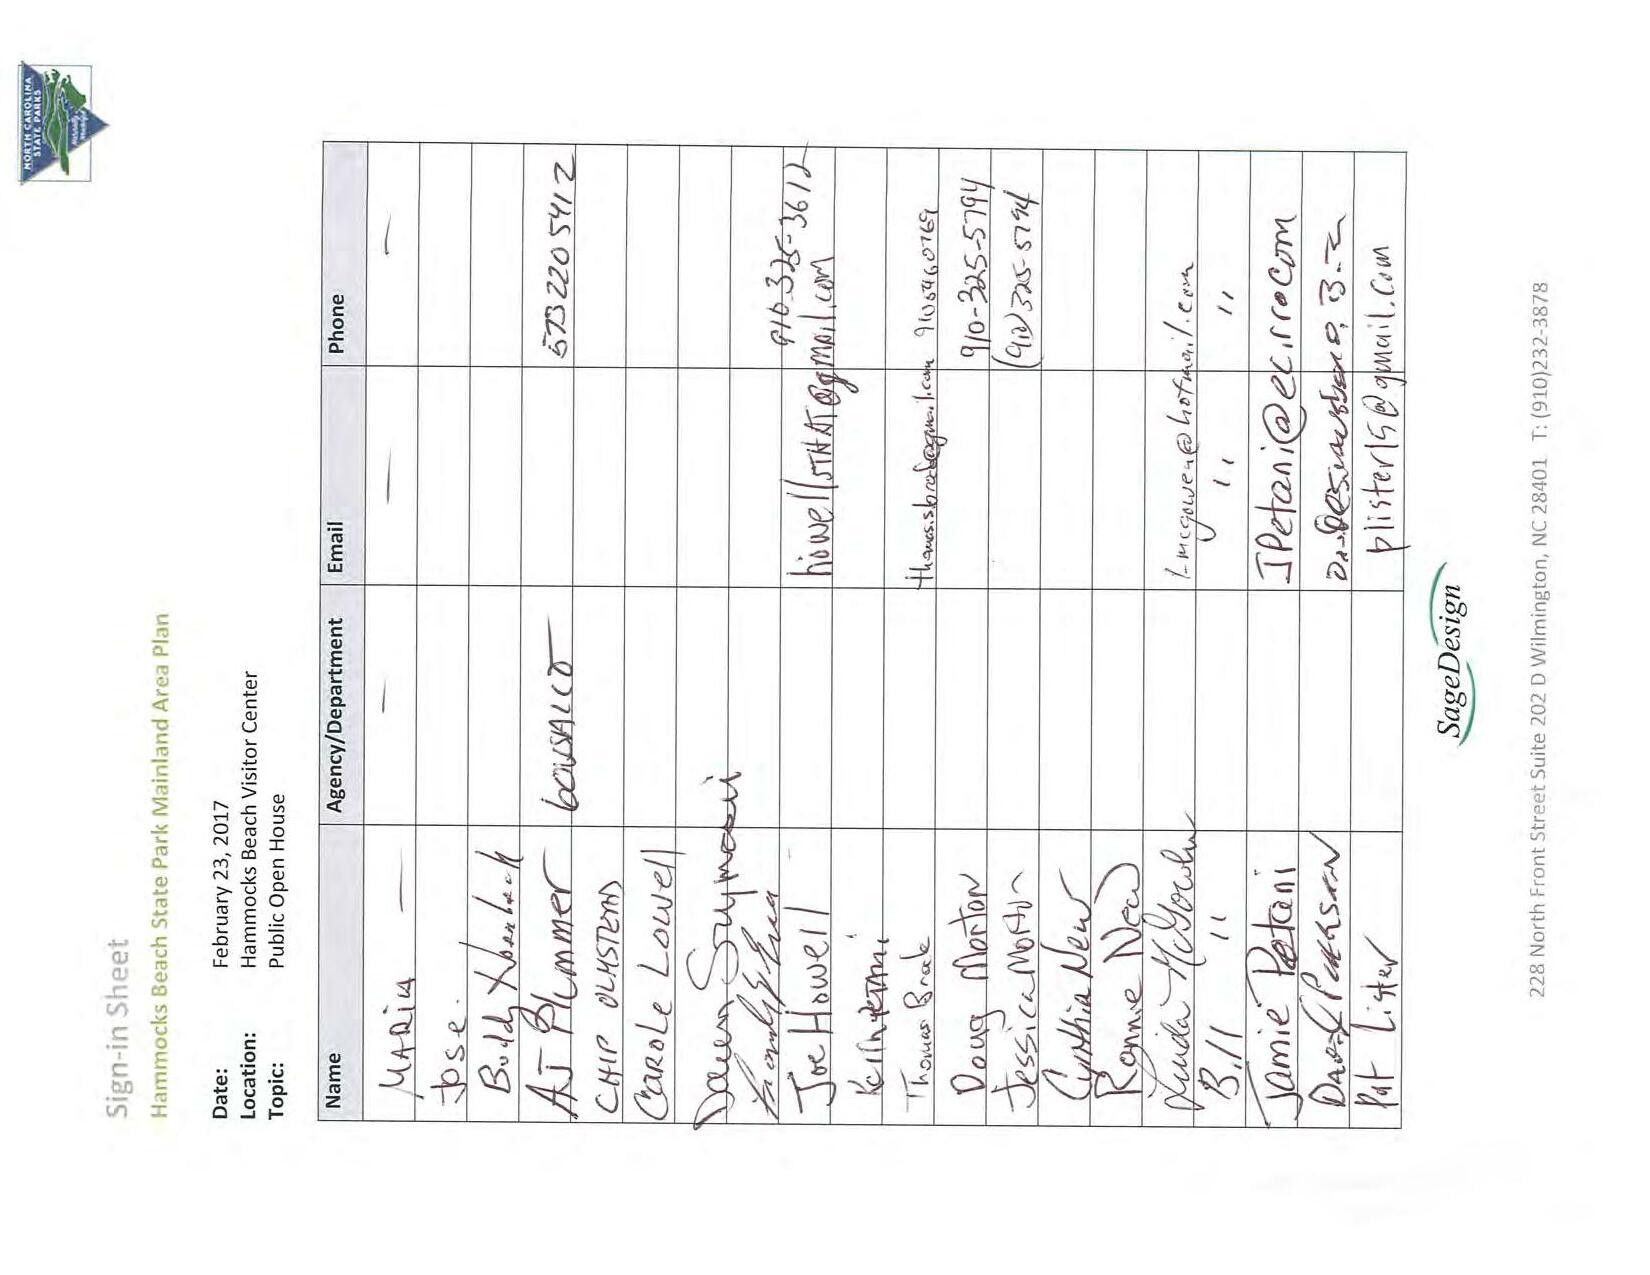 NORTH CAROLINA
STATE PARKS
Naturally Wonderful
Sign-in Sheet
Hammocks Beach State Park Mainland Area Plan
Date: February 23, 2017
Location: Hammocks Beach Visitor Center
Topic: Public Open House
Name Agency/Department Email Phone
MARia — — — —
Jose
Buddy
AJ Plummer 573 220 5412
CHIP OLMSTEAD
CAROLE LOWELL
Dawn
Joe Howell howellsTHAT@gmail.com 910-325-3612
Thomas Brake thomas.s.brake@gmail.com 910 546 0769
Doug Morton 910-325-5794
Jessica Morton (910) 325-5794
Cynthia New
Ronnie New
Linda McGowen l-mcgowen@hotmail.com
Bill " " " "
Jamie Petani JPetani@ec.rr.com
Pat Lister plister15@gmail.com
SageDesign
228 North Front Street Suite 202 D Wilmington, NC 28401 T: (910)232-3878